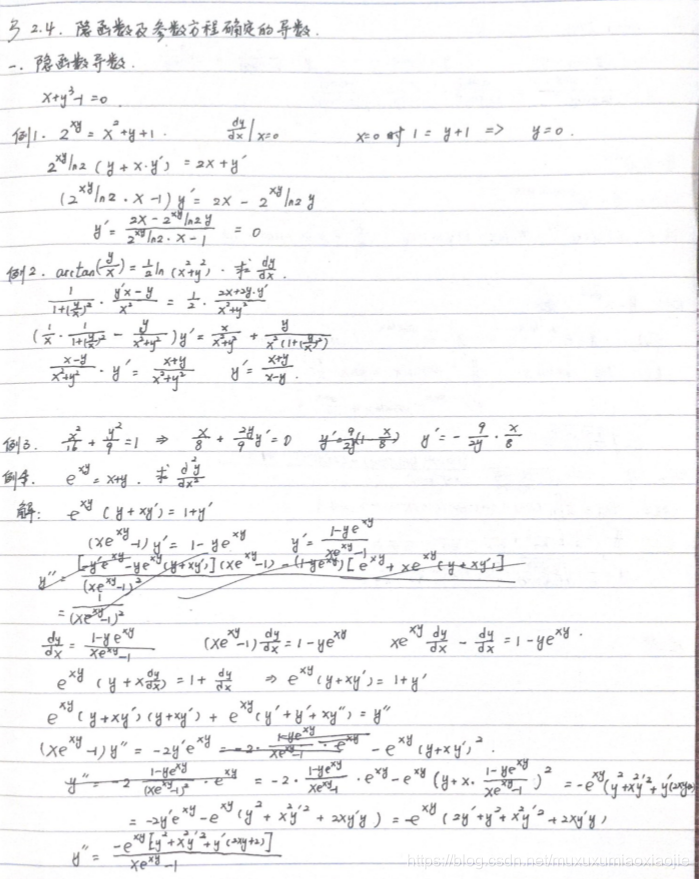 § 2.4. 隐函数及参数方程确定的导数.
一. 隐函数导数.
x+y³-1=0.
例1. 2^{xy} = x²+y+1. dy/dx|_{x=0} x=0时 1 = y+1 => y=0.
2^{xy}ln2 (y + x·y') = 2x+y'
(2^{xy}ln2·x-1) y' = 2x - 2^{xy}ln2 y
y' = (2x - 2^{xy}ln2 y)/(2^{xy}ln2·x-1) = 0
例2. arctan(y/x) = 1/2 ln(x²+y²). 求 dy/dx.
1/(1+(y/x)²) · (y'x-y)/x² = 1/2 · (2x+2y·y')/(x²+y²)
(1/x · 1/(1+(y/x)²) - y/(x²+y²)) y' = x/(x²+y²) + y/(x²(1+(y/x)²))
(x-y)/(x²+y²) · y' = (x+y)/(x²+y²) y' = (x+y)/(x-y).
例3. x²/16 + y²/9 = 1 => x/8 + 2y/9 y' = 0 y' = 9/2y(1-x/8) y' = -9/2y · x/8
例4. e^{xy} = x+y. 求 d²y/dx²
解: e^{xy}(y+xy') = 1+y'
(xe^{xy}-1) y' = 1-ye^{xy} y' = (1-ye^{xy})/(xe^{xy}-1)
y'' = ([-y'e^{xy}-ye^{xy}(y+xy')](xe^{xy}-1) - (1-ye^{xy})[e^{xy}+xe^{xy}(y+xy')])/(xe^{xy}-1)²
= 1/(xe^{xy}-1)²
dy/dx = (1-ye^{xy})/(xe^{xy}-1) (xe^{xy}-1) dy/dx = 1-ye^{xy} xe^{xy} dy/dx - dy/dx = 1-ye^{xy}.
e^{xy}(y+x dy/dx) = 1+ dy/dx => e^{xy}(y+xy') = 1+y'
e^{xy}(y+xy')(y+xy') + e^{xy}(y'+y'+xy'') = y''
(xe^{xy}-1) y'' = -2y'e^{xy} = -2·(1-ye^{xy})/(xe^{xy}-1)·e^{xy} - e^{xy}(y+xy')².
y'' = -2 (1-ye^{xy})/(xe^{xy}-1)²·e^{xy} = -2·(1-ye^{xy})/(xe^{xy}-1)·e^{xy} - e^{xy}(y+x·(1-ye^{xy})/(xe^{xy}-1))² = -e^{xy}(y²+x²y'²+y'(2xy+2)
= -2y'e^{xy} - e^{xy}(y²+x²y'²+2xy'y) = -e^{xy}(2y'+y²+x²y'²+2xy'y)
y'' = -e^{xy}[y²+x²y'²+y'(2xy+2)]/(xe^{xy}-1)
https://blog.csdn.net/muxuxumiaoxiaojie